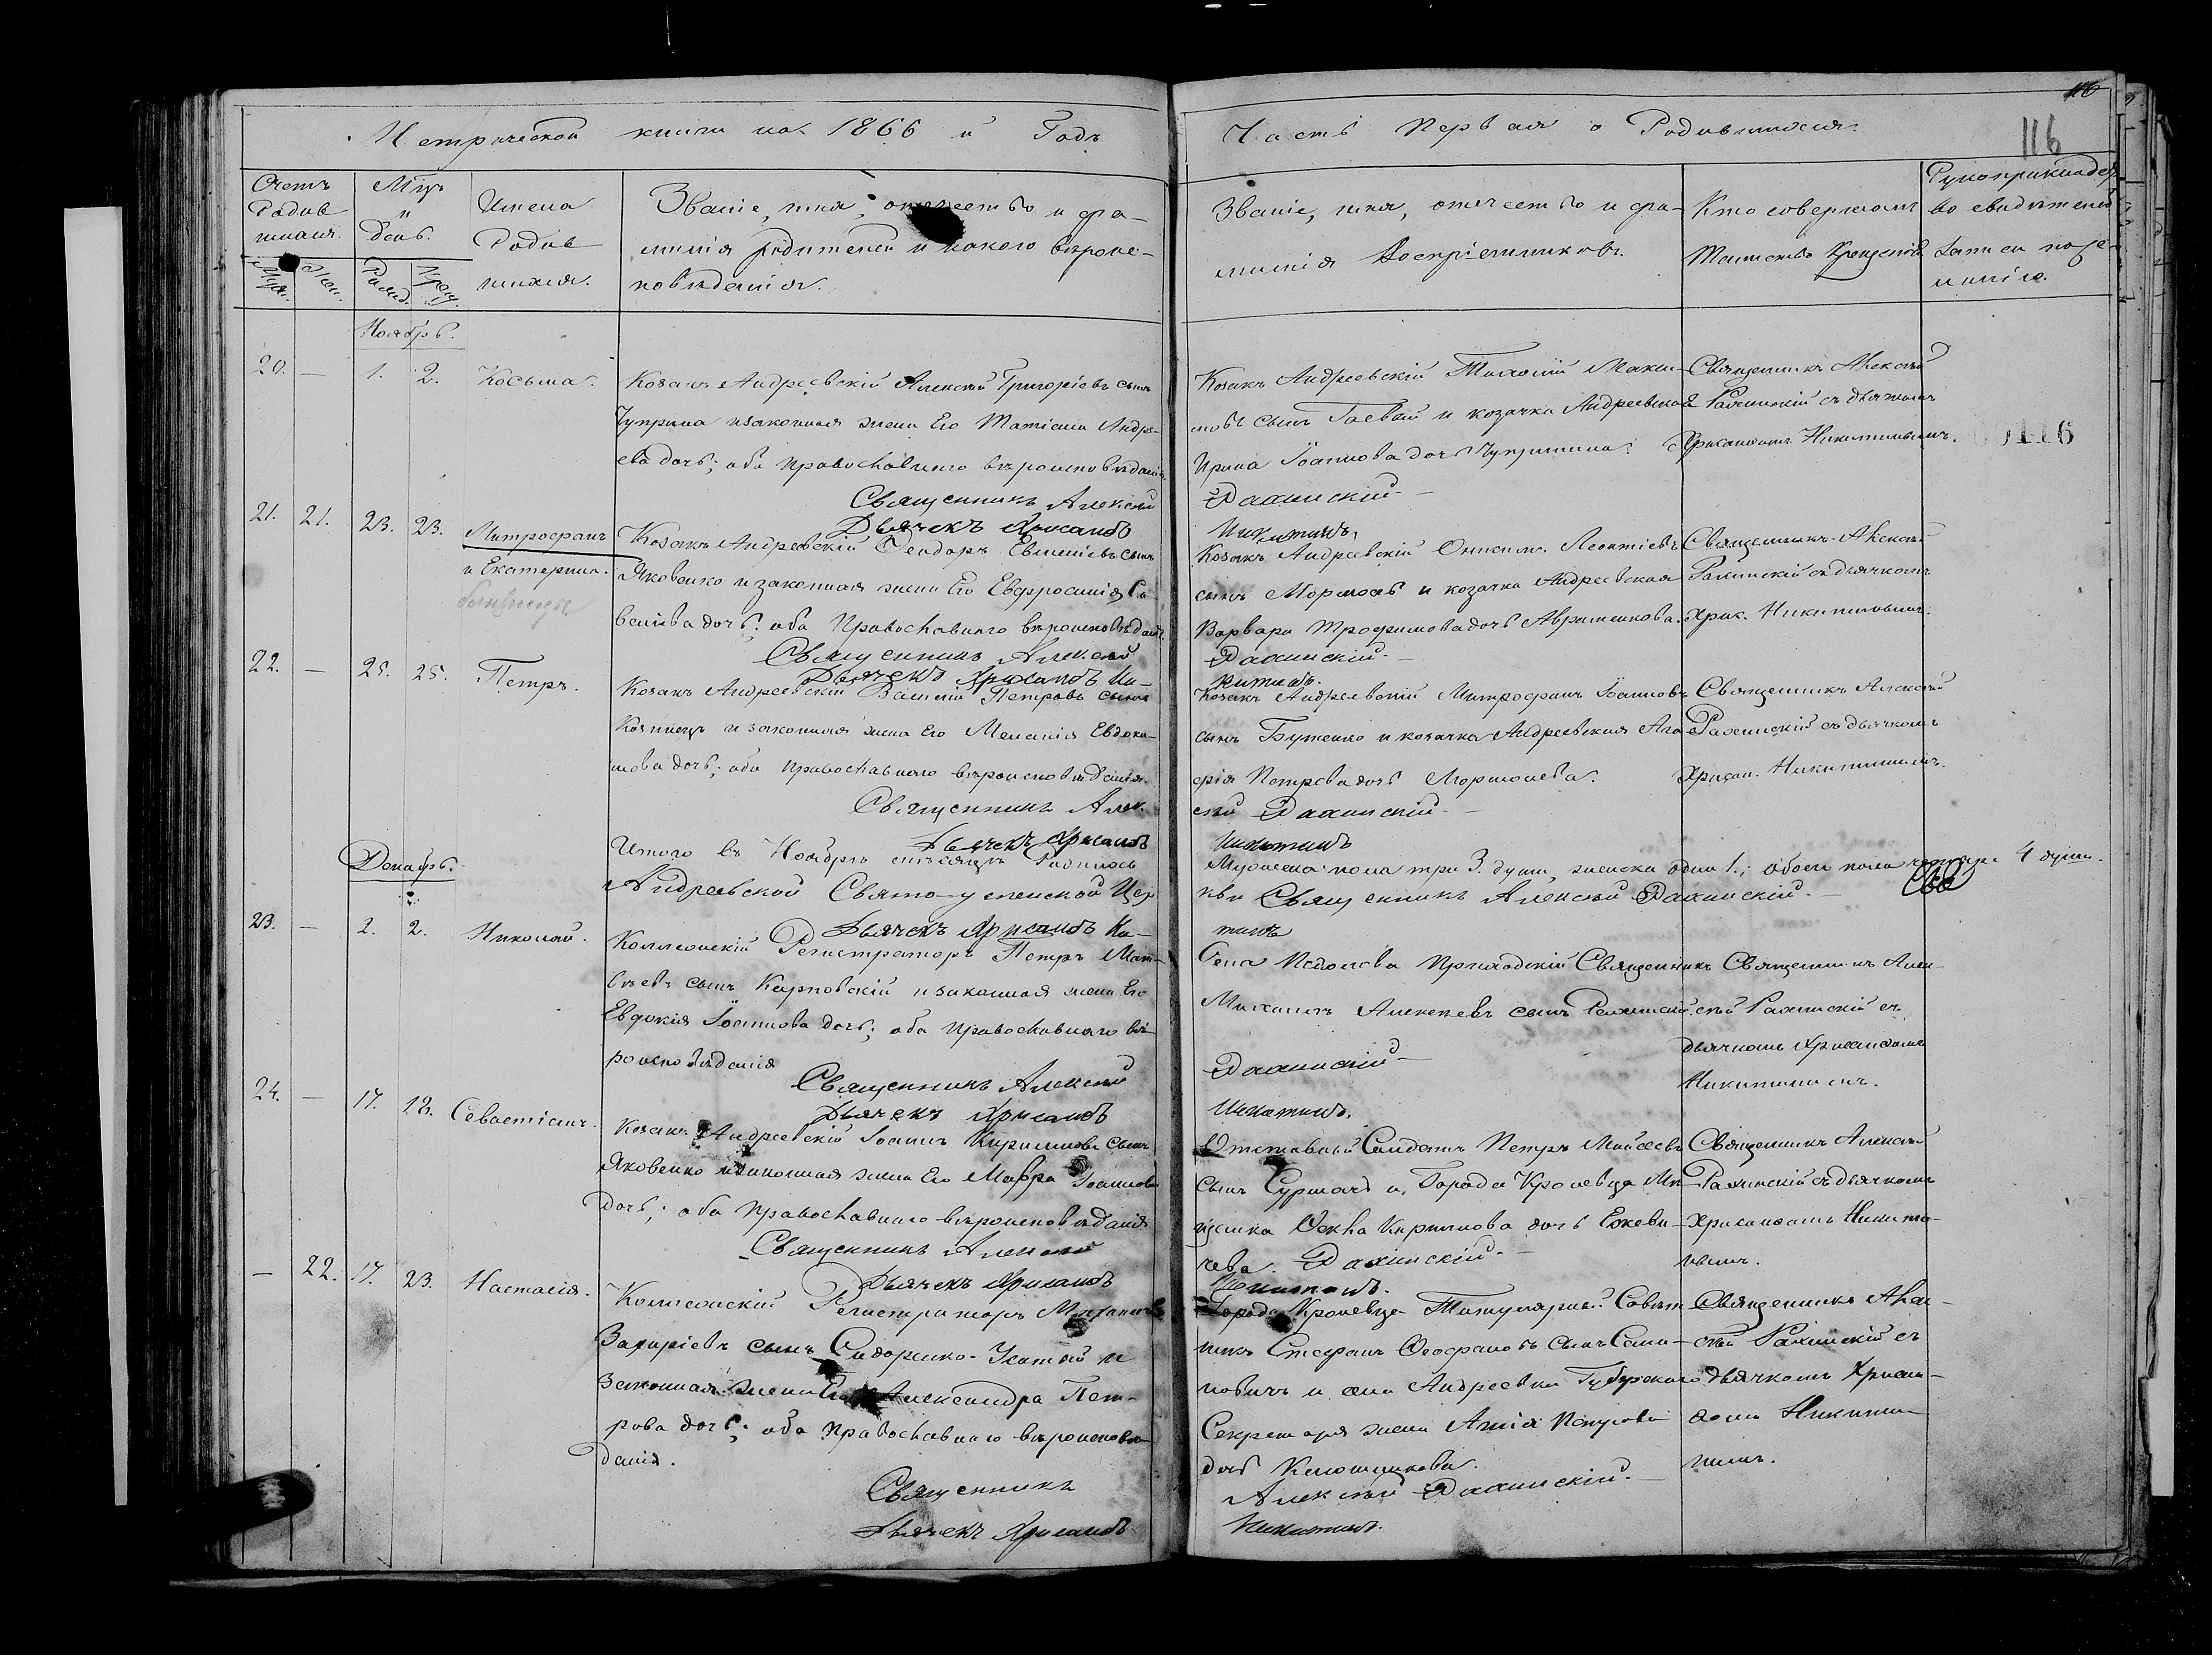 Метрической книги на 1866 й Годъ
Часть Первая о Родившихся.
116
116
Счетъ Родившихся.
Муж. Жен.
Мцъ и День.
Рожд. Крещ.
Имена Родившихся.
Званіе, имя, отчество и фа-
милія родителей и какого вѣроис-
повѣданія.
Званіе, имя, отчество и фа-
милія Воспріемниковъ.
Кто совершалъ
Таинство Крещенія
Рукоприкладс
во свидѣтелей
записи по же-
ланію.
Ноябрь.
20. — 1. 2. Косьма.
Козакъ Андреевскій Алексей Григоріевъ сынъ
Чуприна и законная жена Его Татіана Андре-
ева дочь; оба Православнаго вѣроисповѣданія
Священникъ Алексій
Дьячекъ Хрисанфъ
Козакъ Андреевскій Макси-
мовъ сынъ Гаевый и козачка Андреевская
Ирина Іоаннова дочь Чуприна.
Рахинскій
Никитинъ.
Священникъ Алексій
Рахинскій съ дьячкомъ
Хрисанфомъ Никитинымъ.
00116
21. 21. 23. 23. Митрофанъ
и Екатерина.
близнецы
Козакъ Андреевскій Феодоръ Евменіевъ сынъ
Яковенко и законная жена Его Евфросинія Са-
веліева дочь; оба Православнаго вѣроисповѣданія
Священникъ Алексій
Дьячекъ Хрисанфъ Ни-
Козакъ Андреевскій Онисимъ Леонтіевъ
сынъ Моршовъ и козачка Андреевская
Варвара Трофимова дочь Авраменкова.
Рахинскій
китинъ.
Священникъ Алексій
Рахинскій съ дьячкомъ
Хрис. Никитинымъ.
22. — 25. 25. Петръ.
Козакъ Андреевскій Василій Петровъ сынъ
и законная жена Его Меланія Евдоки-
мова дочь; оба Православнаго вѣроисповѣданія.
Священникъ Алек.
Дьячекъ Хрисанфъ
Козакъ Андреевскій Митрофанъ Іоанновъ
сынъ Бутенко и козачка Андреевская Ага-
фія Петрова дочь
сій Рахинскій
Никитинъ
Священникъ Алексій
Рахинскій съ дьячкомъ
Хрисан. Никитинымъ.
Итого въ Ноябрѣ мѣсяцѣ Родилось
Мужеска пола три 3. души, женска одна 1., обоего пола четыре 4 души.
Андреевской Свято-успенской Цер
кви Священникъ Алексій Рахинскій
Дьячекъ Хрисанфъ Ни-
тинъ
Декабрь.
23. — 2. 2. Николай.
Коллежскій Регистраторъ Петръ Мат-
вѣевъ сынъ Карповскій и законная жена Его
Евдокія Іоаннова дочь; оба Православнаго вѣ-
роисповѣданія
Священникъ Алексій
Дьячекъ Хрисанфъ
Села Приходскій Священникъ
Михаилъ Алексіевъ сынъ Рахинскій.
Рахинскій
Никитинъ.
Священникъ Алек-
сій Рахинскій съ
дьячкомъ Хрисанфомъ
Никитинымъ.
24. — 17. 18. Севастіанъ.
Козакъ Андреевскій Іоаннъ Кириловъ сынъ
Яковенко и законная жена Его Мавра Іоаннова
дочь; оба Православнаго вѣроисповѣданія
Священникъ Алексій
Дьячекъ Хрисанфъ
Отставный Солдатъ Петръ Моисеевъ
сынъ Сурмачъ и Города Кролевца Мѣ-
щанка Фекла Кирилова дочь Ежеви-
чева. Рахинскій
Никитинъ.
Священникъ Алексій
Рахинскій съ дьячкомъ
Хрисанфомъ Никити-
нымъ.
— 22. 17. 23. Настасія.
Коллежскій Регистраторъ Михаилъ
Захаріевъ сынъ Сидоренко-Усатый и
Законная жена Его Александра Пет-
рова дочь; оба Православнаго вѣроисповѣ-
данія.
Священникъ
Дьячекъ Хрисанфъ
Города Кролевца Титулярный Совѣт-
никъ Стефанъ Феофановъ сынъ Сама-
новичъ и села Андреевки Губернскаго
Секретаря жена Анна Петрова
дочь
Алексій Рахинскій.
Никитинъ.
Священникъ Алек-
сѣй Рахинскій съ
дьячкомъ Хрисан-
фомъ Никити-
нымъ.